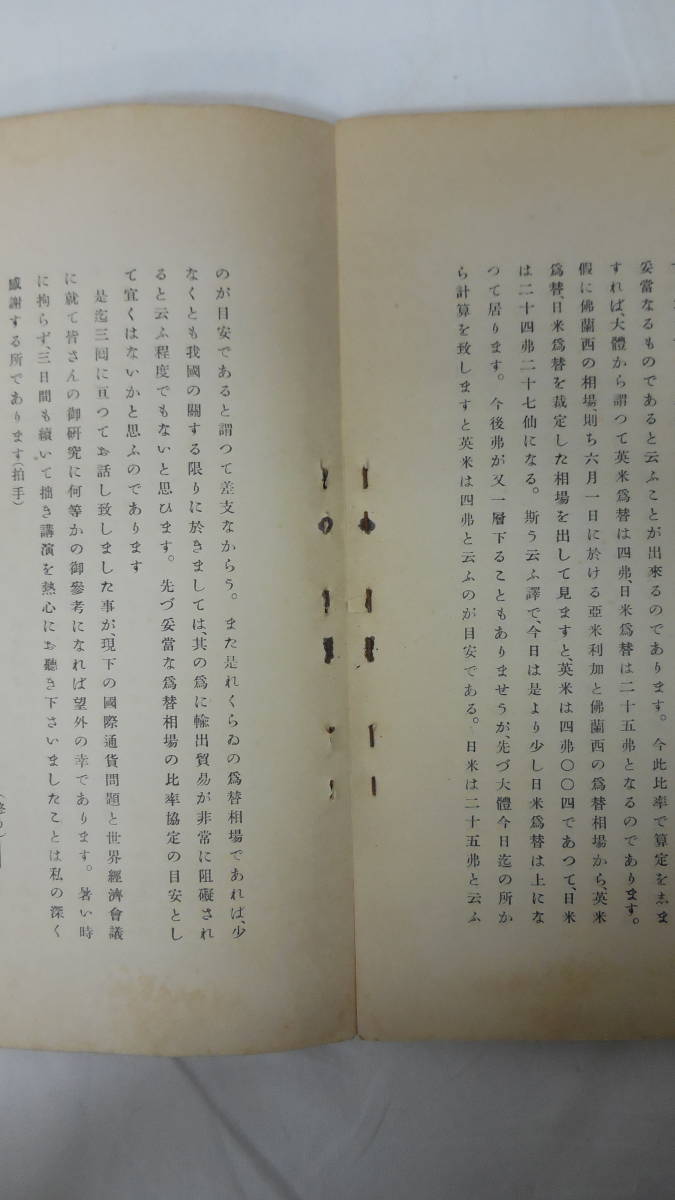 妥當なるものであると云ふことが出來るのであります。今此比率で算定を志ま
すれば、大體から謂つて英米爲替は四弗、日米爲替は二十五弗となるのであります。
假に佛蘭西の相場、則ち六月一日に於ける亞米利加と佛蘭西の爲替相場から、英米
爲替、日米爲替を裁定した相場を出して見ますと、英米は四弗〇〇四であつて、日米
は二十四弗二十七仙になる。斯う云ふ譯で、今日は是より少し日米爲替は上にな
つて居ります。今後弗が又一層下ることもありませうが、先づ大體今日迄の所か
ら計算を致しますと英米は四弗と云ふのが目安である。日米は二十五弗と云ふ
のが目安であると謂つて差支なからう。また是れくらゐの爲替相場であれば、少
なくとも我國の關する限りに於きましては、其の爲に輸出貿易が非常に阻礙され
ると云ふ程度でもないと思ひます。先づ妥當な爲替相場の比率協定の目安とし
て宜くはないかと思ふのであります
是迄三囘に亘つてお話し致しました事が、現下の國際通貨問題と世界經濟會議
に就て皆さんの御硏究に何等かの御參考になれば望外の幸であります。暑い時
に拘らず、三日間も續いて拙き講演を熱心にお聽き下さいましたことは私の深く
感謝する所であります(拍手)